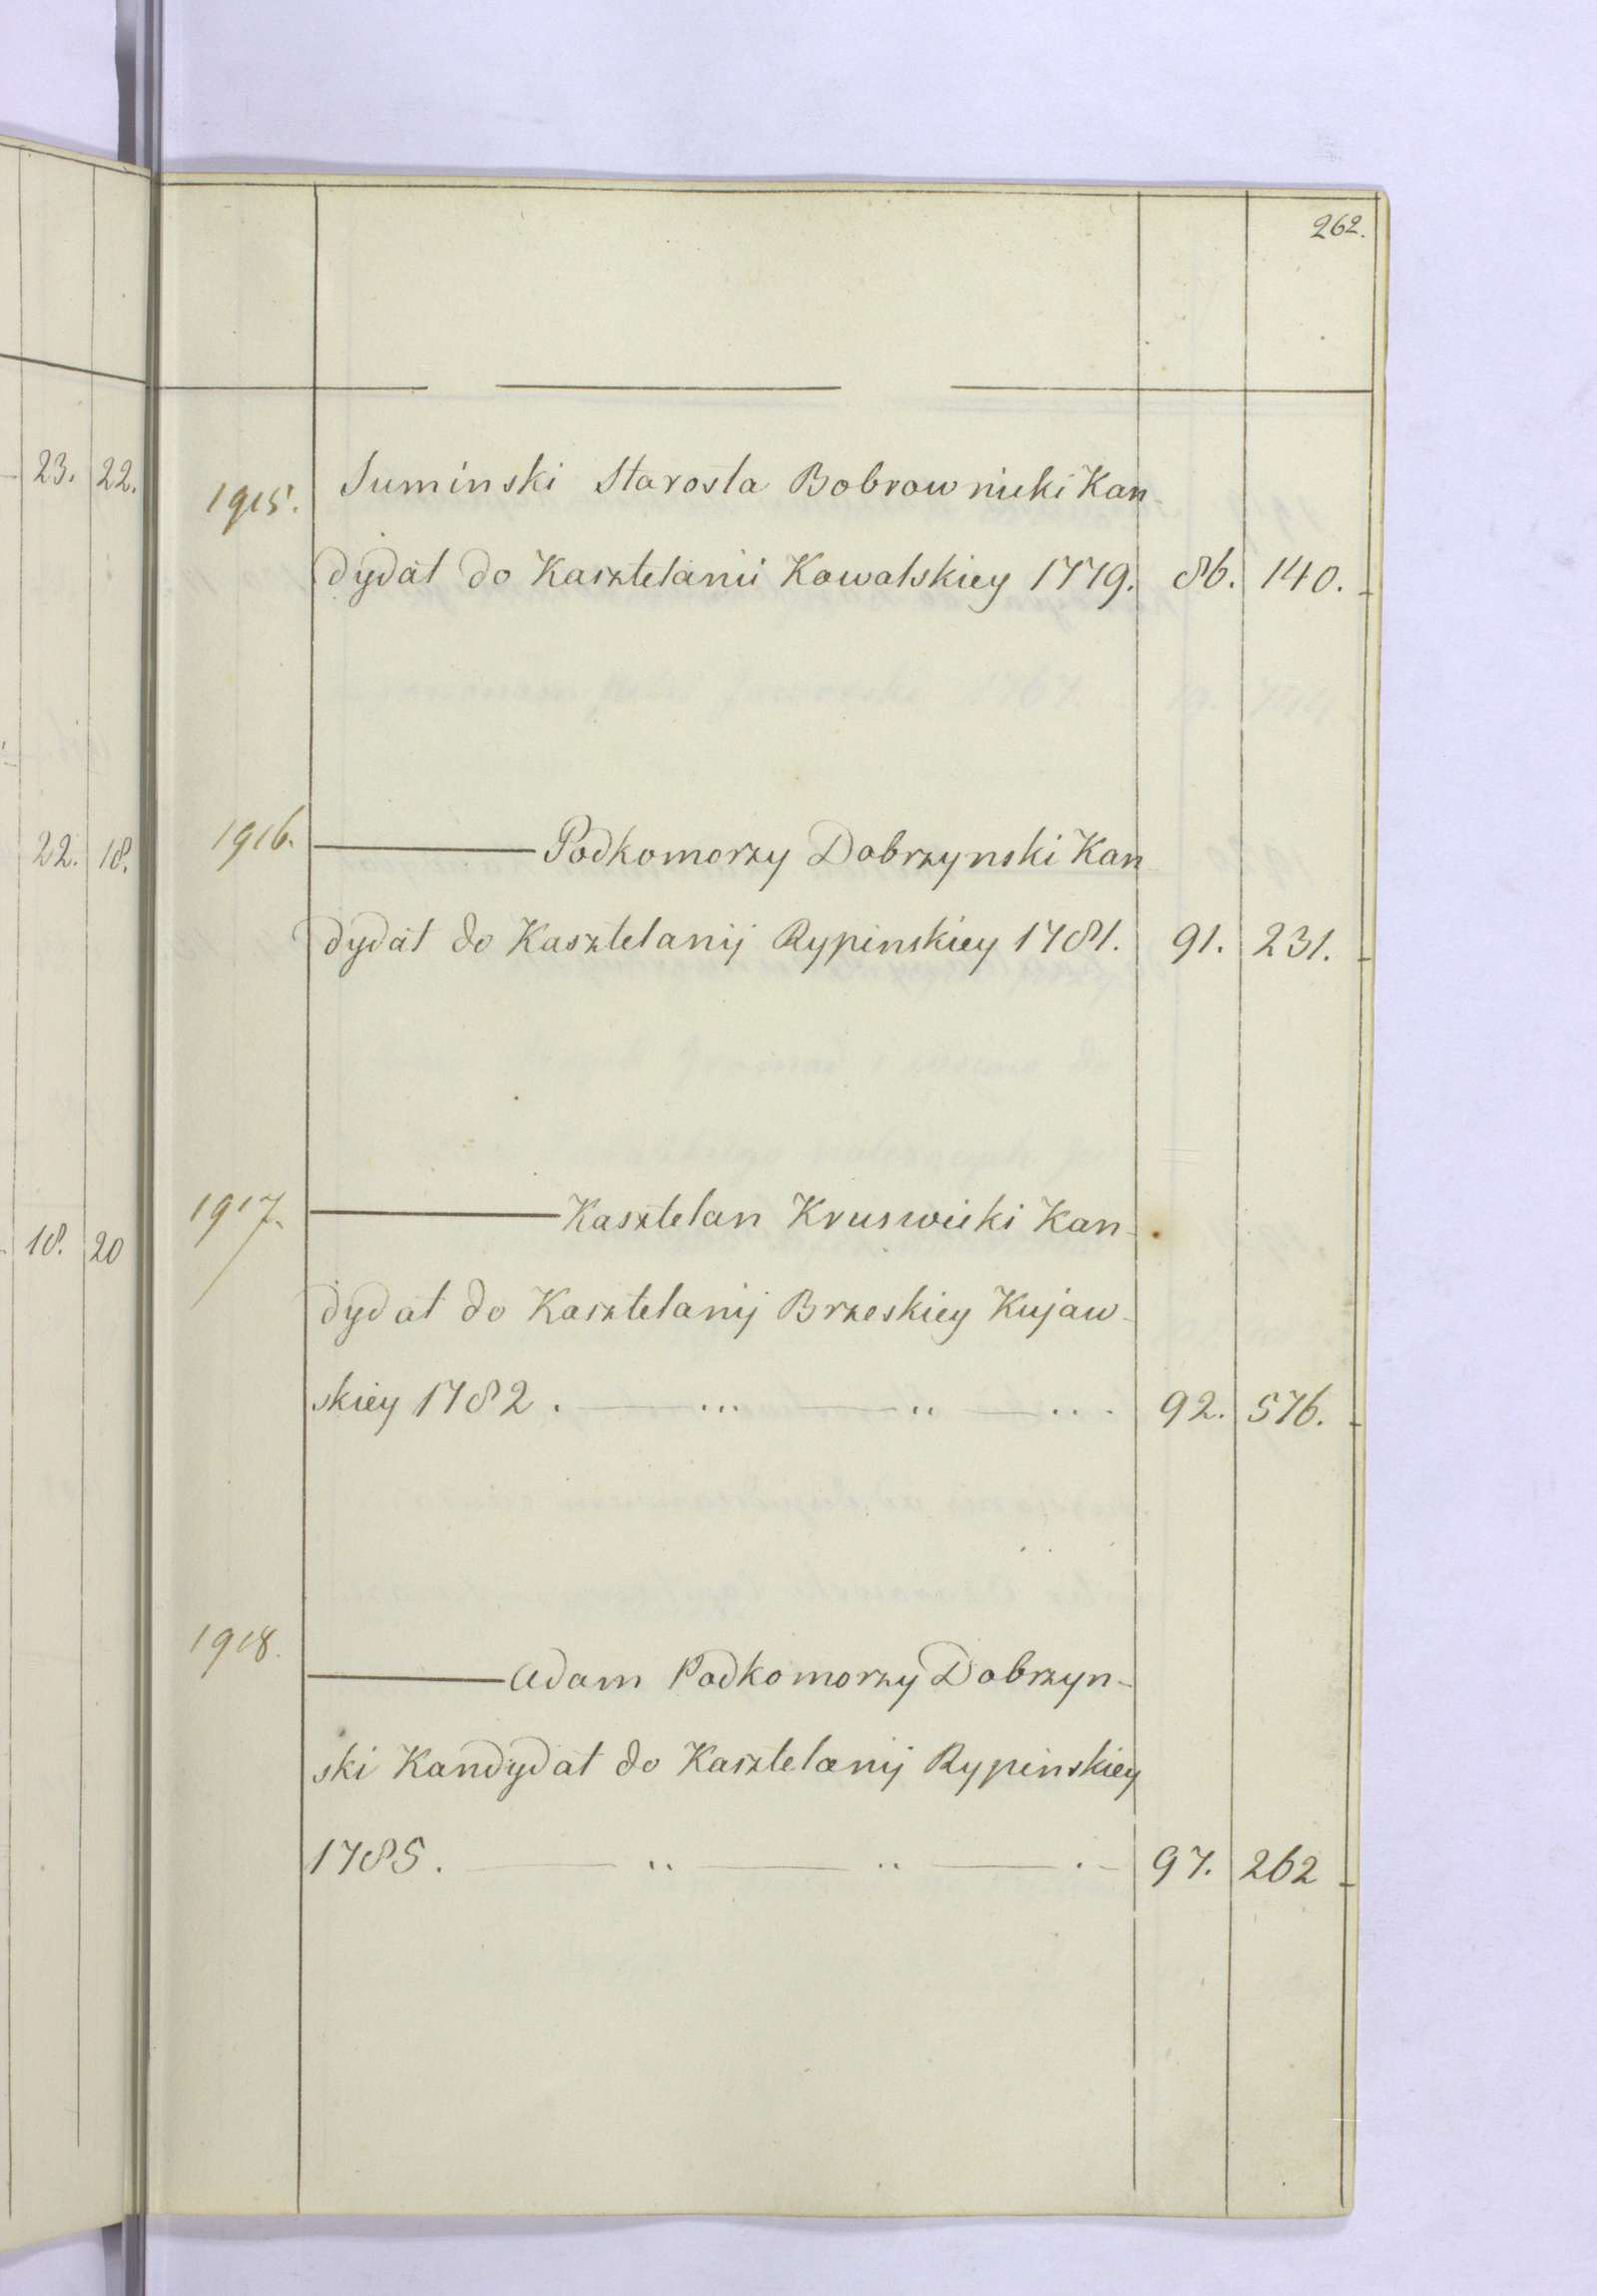 262.
23. 22.
1915. Suminski Starosta Bobrownicki Kan
dydat do Kasztelanii Kowalskiey 1779. 86. 140.
22. 18.
1916. Podkomorzy Dobrzynski Kan
dydat do Kasztelanij Rypinskiey 1781. 91. 231.
18. 20
1917. Kasztelan Kruswicki Kan-
dydat do Kasztelanij Brzeskiey Kujaw-
skiey 1782. 92. 576.
1918. Adam Podkomorzy Dobrzyn-
ski Kandydat do Kasztelanij Rypinskiey
1785. 97. 262